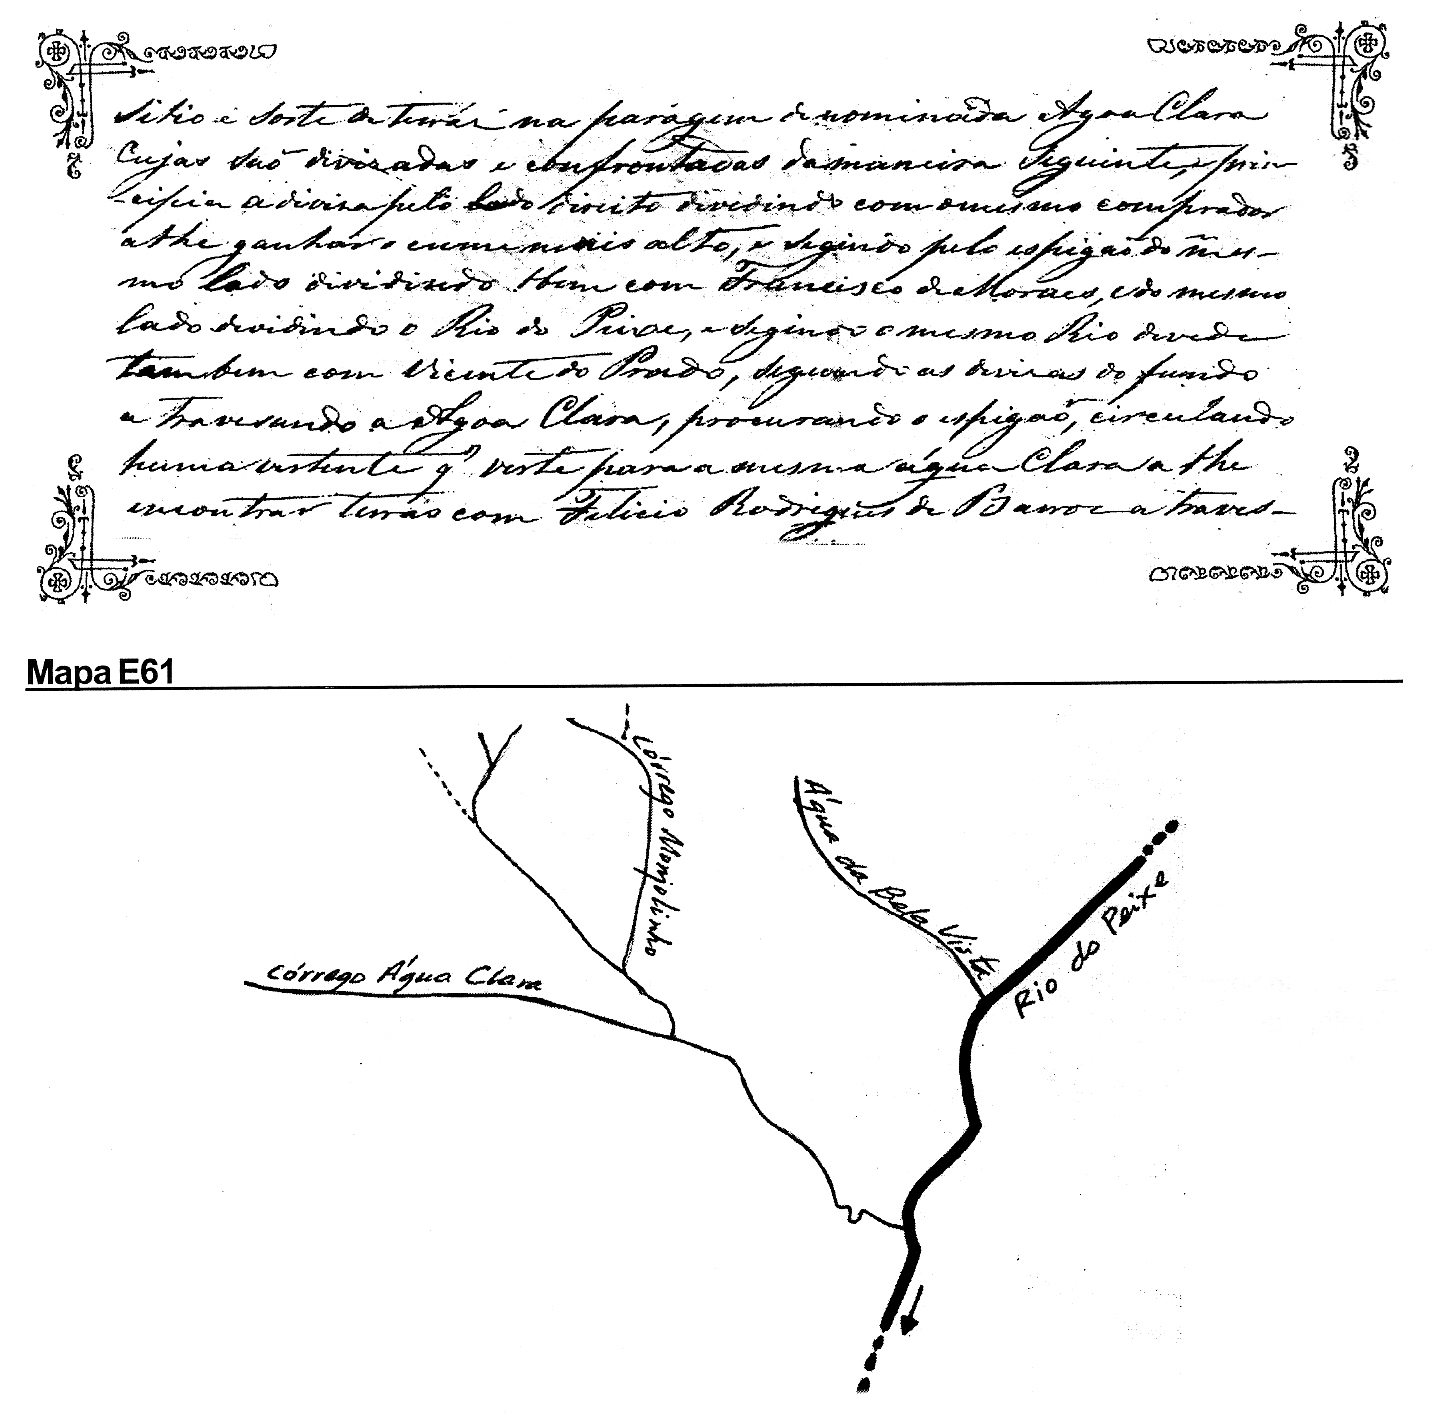 Sitio e Sorte de terras na paragem denominada Agoa Clara
Cujas saõ divizadas e confrontadas da maneira Seguinte, prin-
cipia a diviza pelo lado direito dividindo com o mesmo comprador
athe ganhar o cume mais alto, e segindo pelo espigaõ do mes-
mo lado dividindo tbem com Francisco de Moraes, e do mesmo
lado dividindo o Rio do Peixe, e segindo o mesmo Rio devede
tambem com Vicente do Prado, seguindo as divizas do fundo
a travesando a Agoa Clara, procurando o espigaõ, circulando
huma vertente q' verte para a mesma água Clara athe
encontrar terras com Felicio Rodrigues de Barros a traves-
Mapa E61
Córrego Monjolinho
Água da Bela Vista
Rio do Peixe
Córrego Água Clara